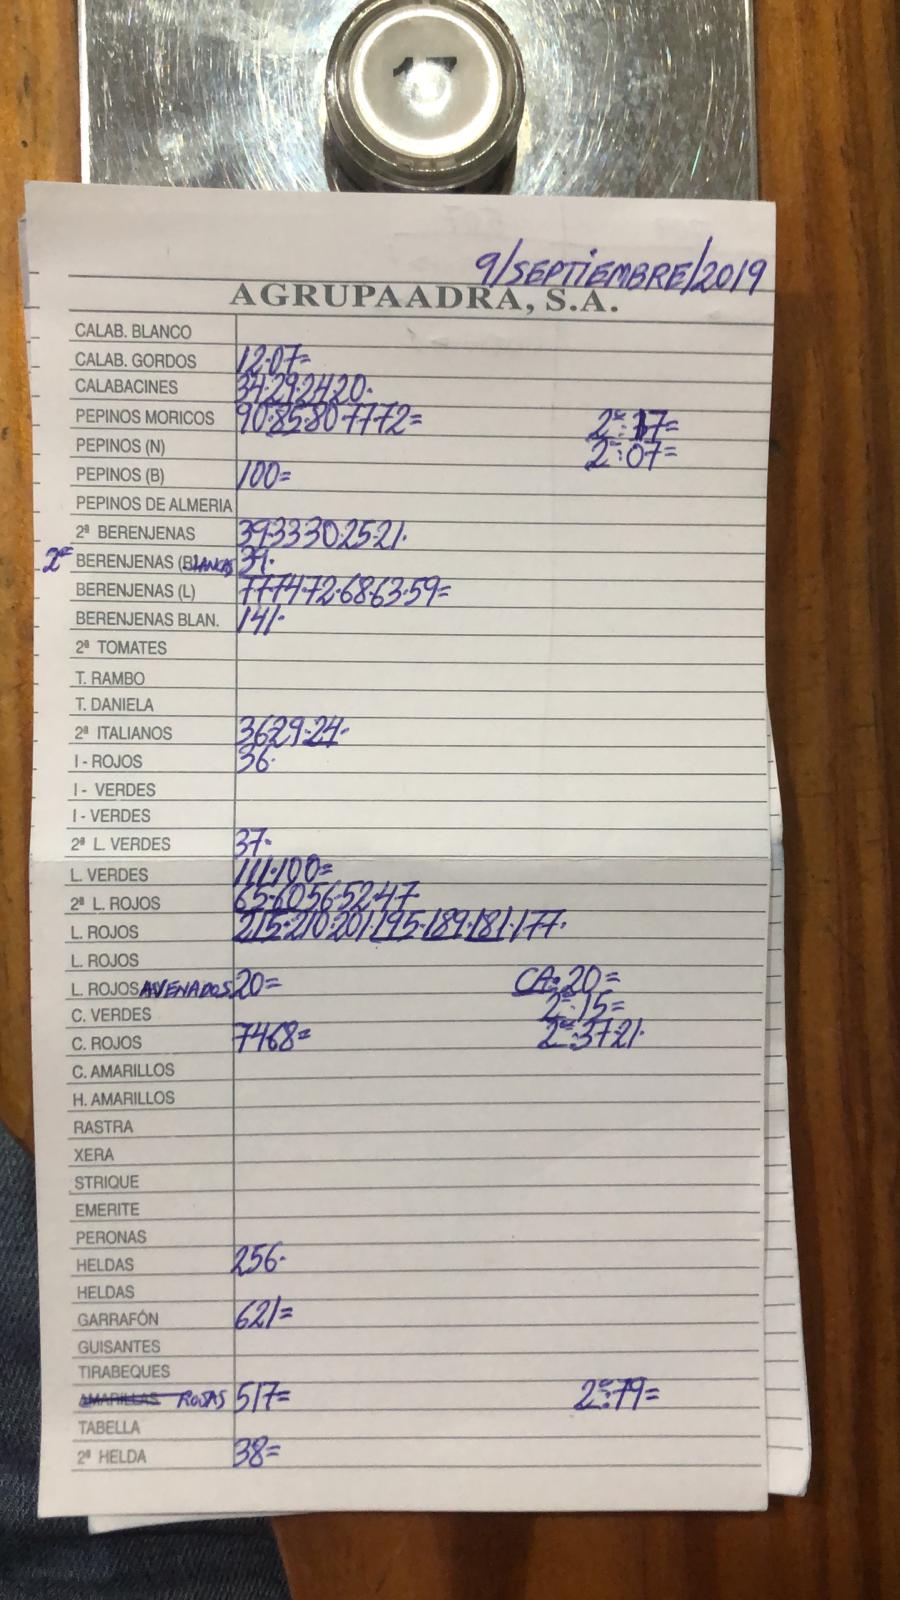 17
9/SEPTIEMBRE/2019
AGRUPAADRA, S.A.
CALAB. BLANCO
CALAB. GORDOS 12·07=
CALABACINES 34·29·24·20·
PEPINOS MORICOS 90·85·80·77·72= 2ª: 17=
PEPINOS (N) 2ª: 07=
PEPINOS (B) 100=
PEPINOS DE ALMERIA
2ª BERENJENAS 39·33·30·25·21·
2ª BERENJENAS (BLANCAS 39·
BERENJENAS (L) 77·74·72·68·63·59=
BERENJENAS BLAN. 141·
2ª TOMATES
T. RAMBO
T. DANIELA
2ª ITALIANOS 36·29·24·
I - ROJOS 36·
I - VERDES
I - VERDES
2ª L. VERDES 37·
L. VERDES 111·100=
2ª L. ROJOS 65·60·56·52·47
L. ROJOS 215·210·201·195·189·181·177·
L. ROJOS
L. ROJOS AVENADOS 20= CA: 20=
C. VERDES 2ª: 15=
C. ROJOS 74·68= 2ª: 37·21·
C. AMARILLOS
H. AMARILLOS
RASTRA
XERA
STRIQUE
EMERITE
PERONAS
HELDAS 256·
HELDAS
GARRAFÓN 621=
GUISANTES
TIRABEQUES
AMARILLAS ROJAS 517= 2ª: 79=
TABELLA
2ª HELDA 38=